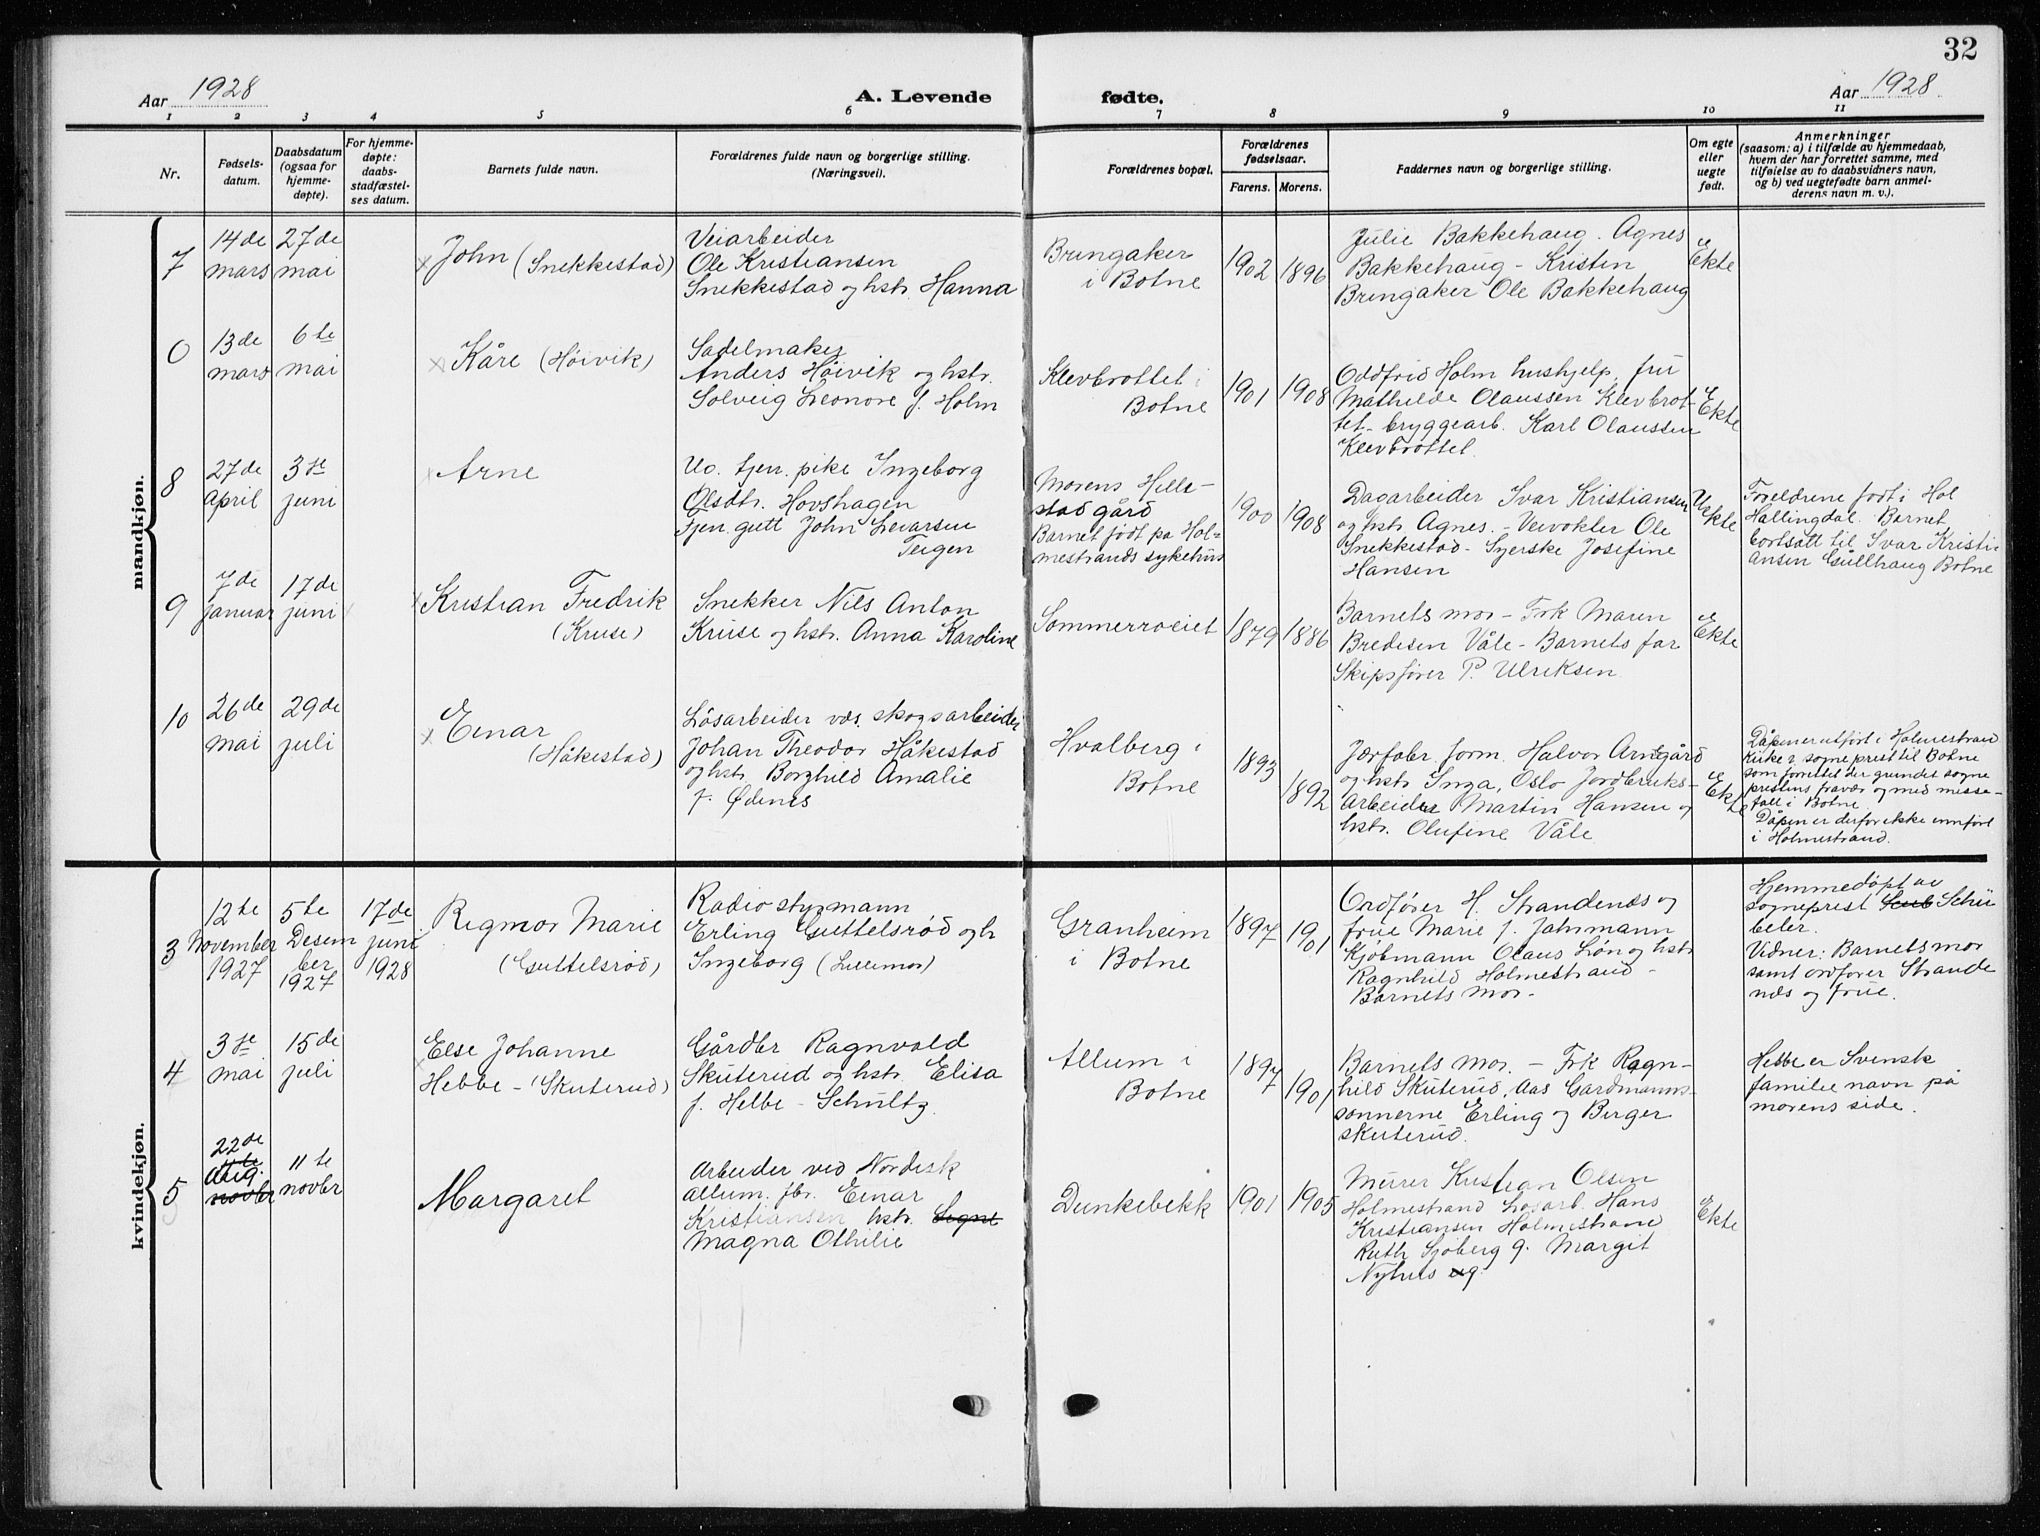 32
Aar 1928
A. Levende
fødte.
Aar 1928
1 2 3 4 5 6 7 8 9 10 11
Nr.
Fødsels-
datum.
Daabsdatum
(ogsaa for
hjemme-
døpte).
For hjemme-
døpte:
daabs-
stadfæstel-
ses datum.
Barnets fulde navn.
Forældrenes fulde navn og borgerlige stilling.
(Næringsvei).
Forældrenes bopæl.
Forældrenes
fødselsaar.
Farens. Morens.
Faddernes navn og borgerlige stilling.
Om egte
eller
uegte
født.
Anmerkninger
(saasom: a) i tilfælde av hjemmedaab,
hvem der har forrettet samme, med
tilføielse av to daabsvidners navn,
og b) ved uegtefødte barn anmel-
derens navn m. v.).
mandkjøn.
7
14de
mars
27de
mai
John (Snekkestad)
Veiarbeider
Ole Kristiansen
Snekkestad og hstr. Hanna
Bringaker
i Botne
1902
1896
Julie Bakkehaug. Agnes
Bakkehaug - Kristen
Bringaker Ole Bakkehaug
Ekte
0
13de
mars
6te
mai
Kåre (Høivik)
Sadelmaker
Anders Høivik og hstr.
Solveig Leonore f. Holm
Klevbrottet i
Botne
1901
1908
Oddfrid Holm hushjelp, fru
Mathilde Olaussen Klevbrot-
tet - bryggearb. Karl Olaussen
Klevbrottet.
Ekte
8
27de
April
3je
juni
Arne
Ug. tjen. pike Ingeborg
Olsdtr. Hovshagen
Tjen. gutt John Levarsen
Teigen
Morens Hille-
stad gård
Barnet født på Hol-
mestrands sykehus
1900
1908
Dagarbeider Ivar Kristiansen
og hstr Agnes. - Veivokter Ole
Snekkestad - Syerske Josefine
Hansen
Uekte
Foreldrene født i Hol
Hallingdal. Barnet
bortsatt til Ivar Kristi-
ansen Gullhaug Botne
9
7de
januar
17de
juni
Kristian Fredrik
(Kruse)
Snekker Nils Anton
Kruse og hstr. Anna Karoline
Sommerroeiet
1879
1886
Barnets mor - Frk Maren
Bredesen Våle - Barnets far
Skipsfører P. Ulriksen
Ekte
10
26de
mai
29de
juli
Einar
(Håkestad)
Løsarbeider vds. skogsarbeider
Johan Theodor Håkestad
og hstr. Borghild Amalie
f. Ødenes
Hvalberg i
Botne
1893
1892
Jærfabr. form. Halvor Arntgård
og hstr Inga, Oslo Jordbruks-
arbeider Martin Hansen og
hstr. Olufine Våle
Ekte
Dåpen er utført i Holmestrand
Kirke av sogneprest til Botne
som forrettet der grundet sogne
prestens fravær og med messe-
fall i Botne
Dåpen er derfor ikke innført
i Holmestrand.
kvindekjøn.
3
12te
November
1927
5te
Desem
ber
1927
17de
juni
1928
Rigmor Marie
(Guttelsrød)
Radio styrmann
Erling Guttelsrød og h
Ingeborg (Lillemor)
Granheim
i Botne
1897
1901
Ordfører H. Strandenæs og
frue Marie f. Jahrmann
Kjøbmann Olaus Løn og hstr
Ragnhild Holmestrand -
Barnets mor -
Hjemmedøpt av
sogneprest Schü
beler.
Vidner: Barnets mor
samt ordfører Strande
næs og frue.
4
3je
mai
15de
juli
Else Johanne
Hebbe - (Skuterud)
Gårdbr Ragnvald
Skuterud og hstr. Elisa
f. Hebbe - Schultz.
Allum i
Botne
1897
1901
Barnets mor. - Frk Ragn-
hild Skuterud, Aas Gardmanns-
sønnerne Erling og Birger
Skuterud.
Hebbe er Svensk
familie navn på
morens side.
5
22de
11te
Aug.
novbr
11te
novbr
Margaret
Arbeider ved Nordisk
Allum. fbr. Einar
Kristiansen hstr. Signe
Magna Othilie
Dunkebekk
1901
1905
Murer Kristian Olsen
Holmestrand Løsarb. Hans
Kristiansen Holmestrand
Ruth Sjøberg g. Margit
Nyhus ug.
Ekte